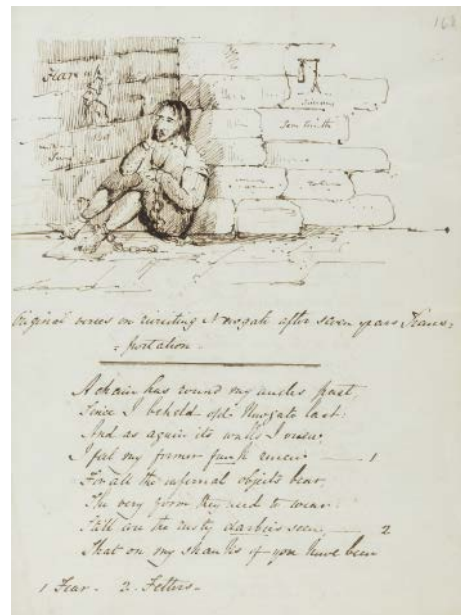 168
Fear
Tom Smith
Original verses on revisiting Newgate after seven years Trans=
=portation.
A chain has round my ancles past,
Since I beheld old Newgate last:
And as again its walls I view,
I feel my former funk renew 1
For all the infernal objects bear
The very form they used to wear:
Still are the rusty darbies seen, 2
That on my shanks if you have been
1 Fear. 2. Fetters.